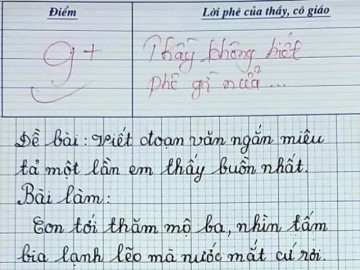 Điểm
Lời phê của thầy, cô giáo
9+
Thầy không biết
phê gì nữa ...
Đề bài: Viết đoạn văn ngắn miêu
tả một lần em thấy buồn nhất.
Bài làm:
Con tới thăm mộ ba, nhìn tấm
bia lạnh lẽo mà nước mắt cứ rơi.